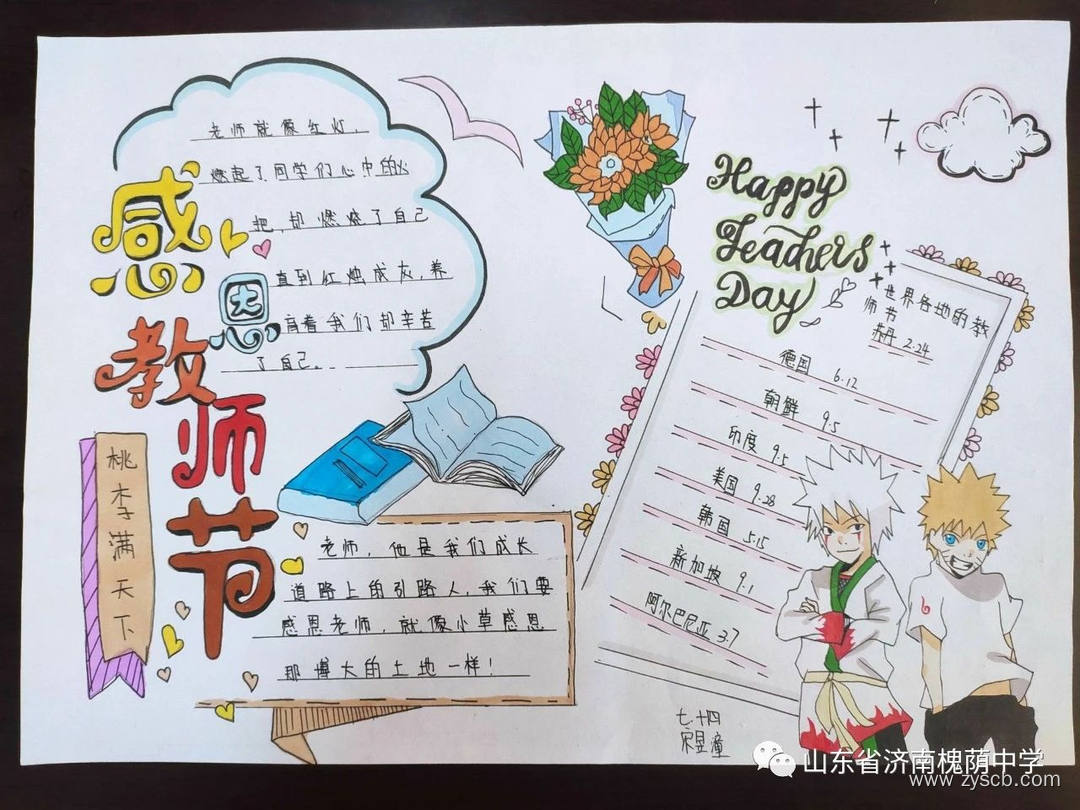 感恩教师节
老师就像红灯，
燃起了同学们心中的火
把，却燃烧了自己
直到红烛成灰，养
育着我们却辛苦
了自己。
桃李满天下
老师，他是我们成长
道路上的引路人，我们要
感恩老师，就像小草感恩
那博大的土地一样！
Happy
Teachers
Day
世界各地的教
师节
苏丹 2.24
德国 6.12
朝鲜 9.5
印度 9.5
美国 9.28
韩国 5.15
新加坡 9.1
阿尔巴尼亚 3.7
七.十四
宋昱潼
山东省济南槐荫中学
www.zyscb.com